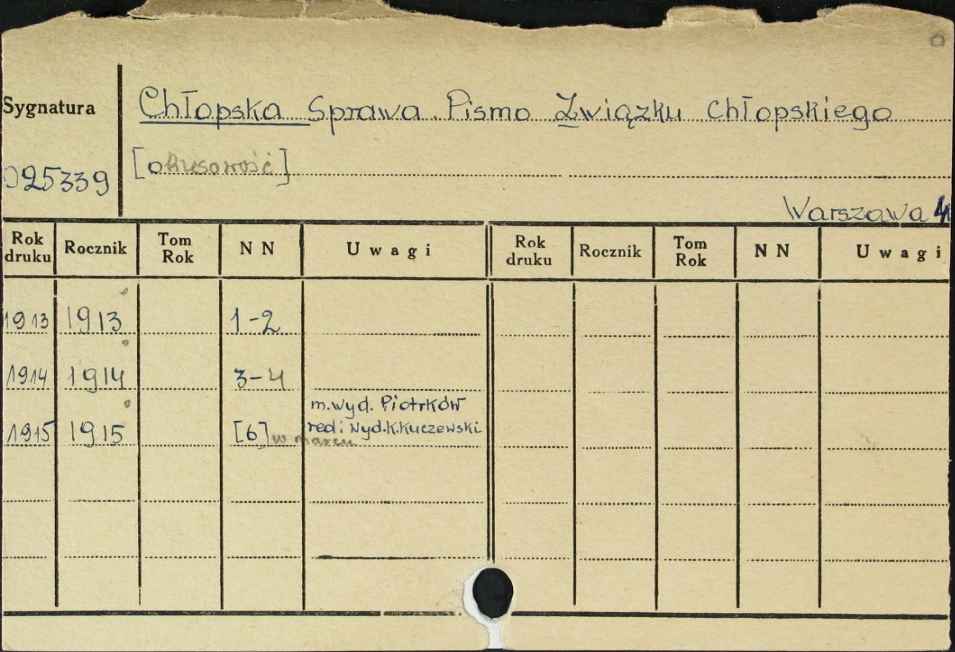 Sygnatura
Chłopska Sprawa. Pismo Związku Chłopskiego
025339
Warszawa 4
Rok druku Rocznik Tom Rok NN Uwagi Rok druku Rocznik Tom Rok NN Uwagi
1913 1913 1-2
1914 1914 3-4
m.wyd. Piotrków
1915 1915 [6] red i wyd. K. Kuczewski